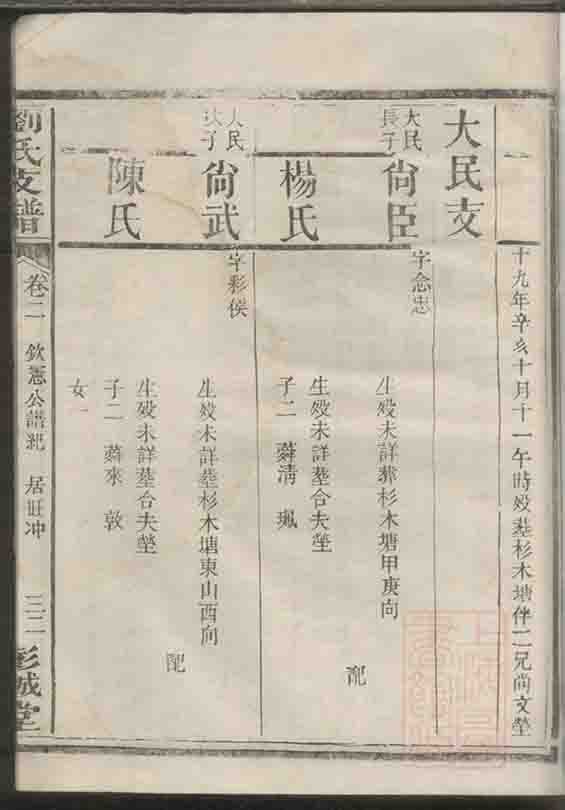 十九年辛亥十月十一午時歿塟杉木塘伴二兄尚文塋
大民支
大民
長子
尚臣
字念忠
生歿未詳葬杉木塘甲庚向
配
楊氏
生歿未詳塟合夫塋
子二 蕣清 珮
大民
次子
尚武
字彩侯
生歿未詳塟杉木塘東山酉向
配
陳氏
生歿未詳塟合夫塋
子二 蕣來 敦
女一
劉氏支譜 卷二 欽憲公譜紀 居旺冲 三二 彭城堂